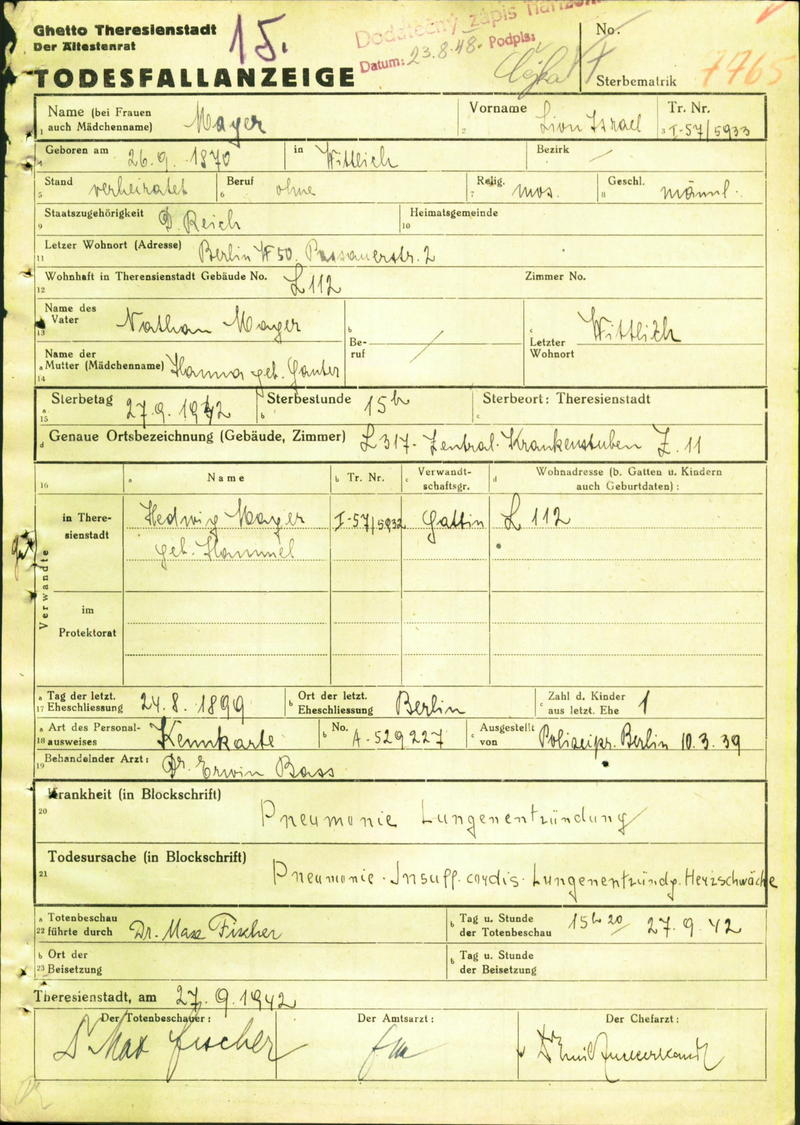 Ghetto Theresienstadt
Der Ältestenrat
15.
Dodatečný zápis
Datum: 23.8.48. Podpis:
No.
TODESFALLANZEIGE
Sterbematrik 7765
Name (bei Frauen auch Mädchenname) Mayer
Vorname Lion Israel
Tr. Nr. I-57/5933
Geboren am 26.9.1870 in Wittlich Bezirk /
Stand verheiratet Beruf ohne Relig. mos. Geschl. männl.
Staatszugehörigkeit D. Reich Heimatsgemeinde
Letzer Wohnort (Adresse) Berlin W 50. Passauerstr. 2
Wohnhaft in Theresienstadt Gebäude No. L 112 Zimmer No.
Name des Vater Nathan Mayer
Beruf /
Letzter Wohnort Wittlich
Name der Mutter (Mädchenname) Hanna geb. Ganter
Sterbetag 27.9.1942 Sterbestunde 15h Sterbeort: Theresienstadt
Genaue Ortsbezeichnung (Gebäude, Zimmer) L 317 - Zentral. Krankenstuben Z. 11
16 a Name b Tr. Nr. c Verwandtschaftsgr. d Wohnadresse (b. Gatten u. Kindern auch Geburtdaten):
Verwandte
in Theresienstadt Hedwig Mayer I-57/5932 Gattin L 112
geb. Hammel
im Protektorat
Tag der letzt. Eheschliessung 24.8.1899 Ort der letzt. Eheschliessung Berlin Zahl d. Kinder aus letzt. Ehe 1
Art des Personalausweises Kennkarte No. A-529227 Ausgestellt von Polizeipr. Berlin 10.3.39
Behandelnder Arzt: Dr. Erwin Bass
Krankheit (in Blockschrift) Pneumonie Lungenentzündung
Todesursache (in Blockschrift) Pneumonie - Insuff. cordis - Lungenentzündg. Herzschwäche
Totenbeschau führte durch Dr. Max Fischer Tag u. Stunde der Totenbeschau 15h 20 27.9.42
Ort der Beisetzung Tag u. Stunde der Beisetzung
Theresienstadt, am 27.9.1942
Der Totenbeschauer: Der Amtsarzt: Der Chefarzt:
Dr Max Fischer